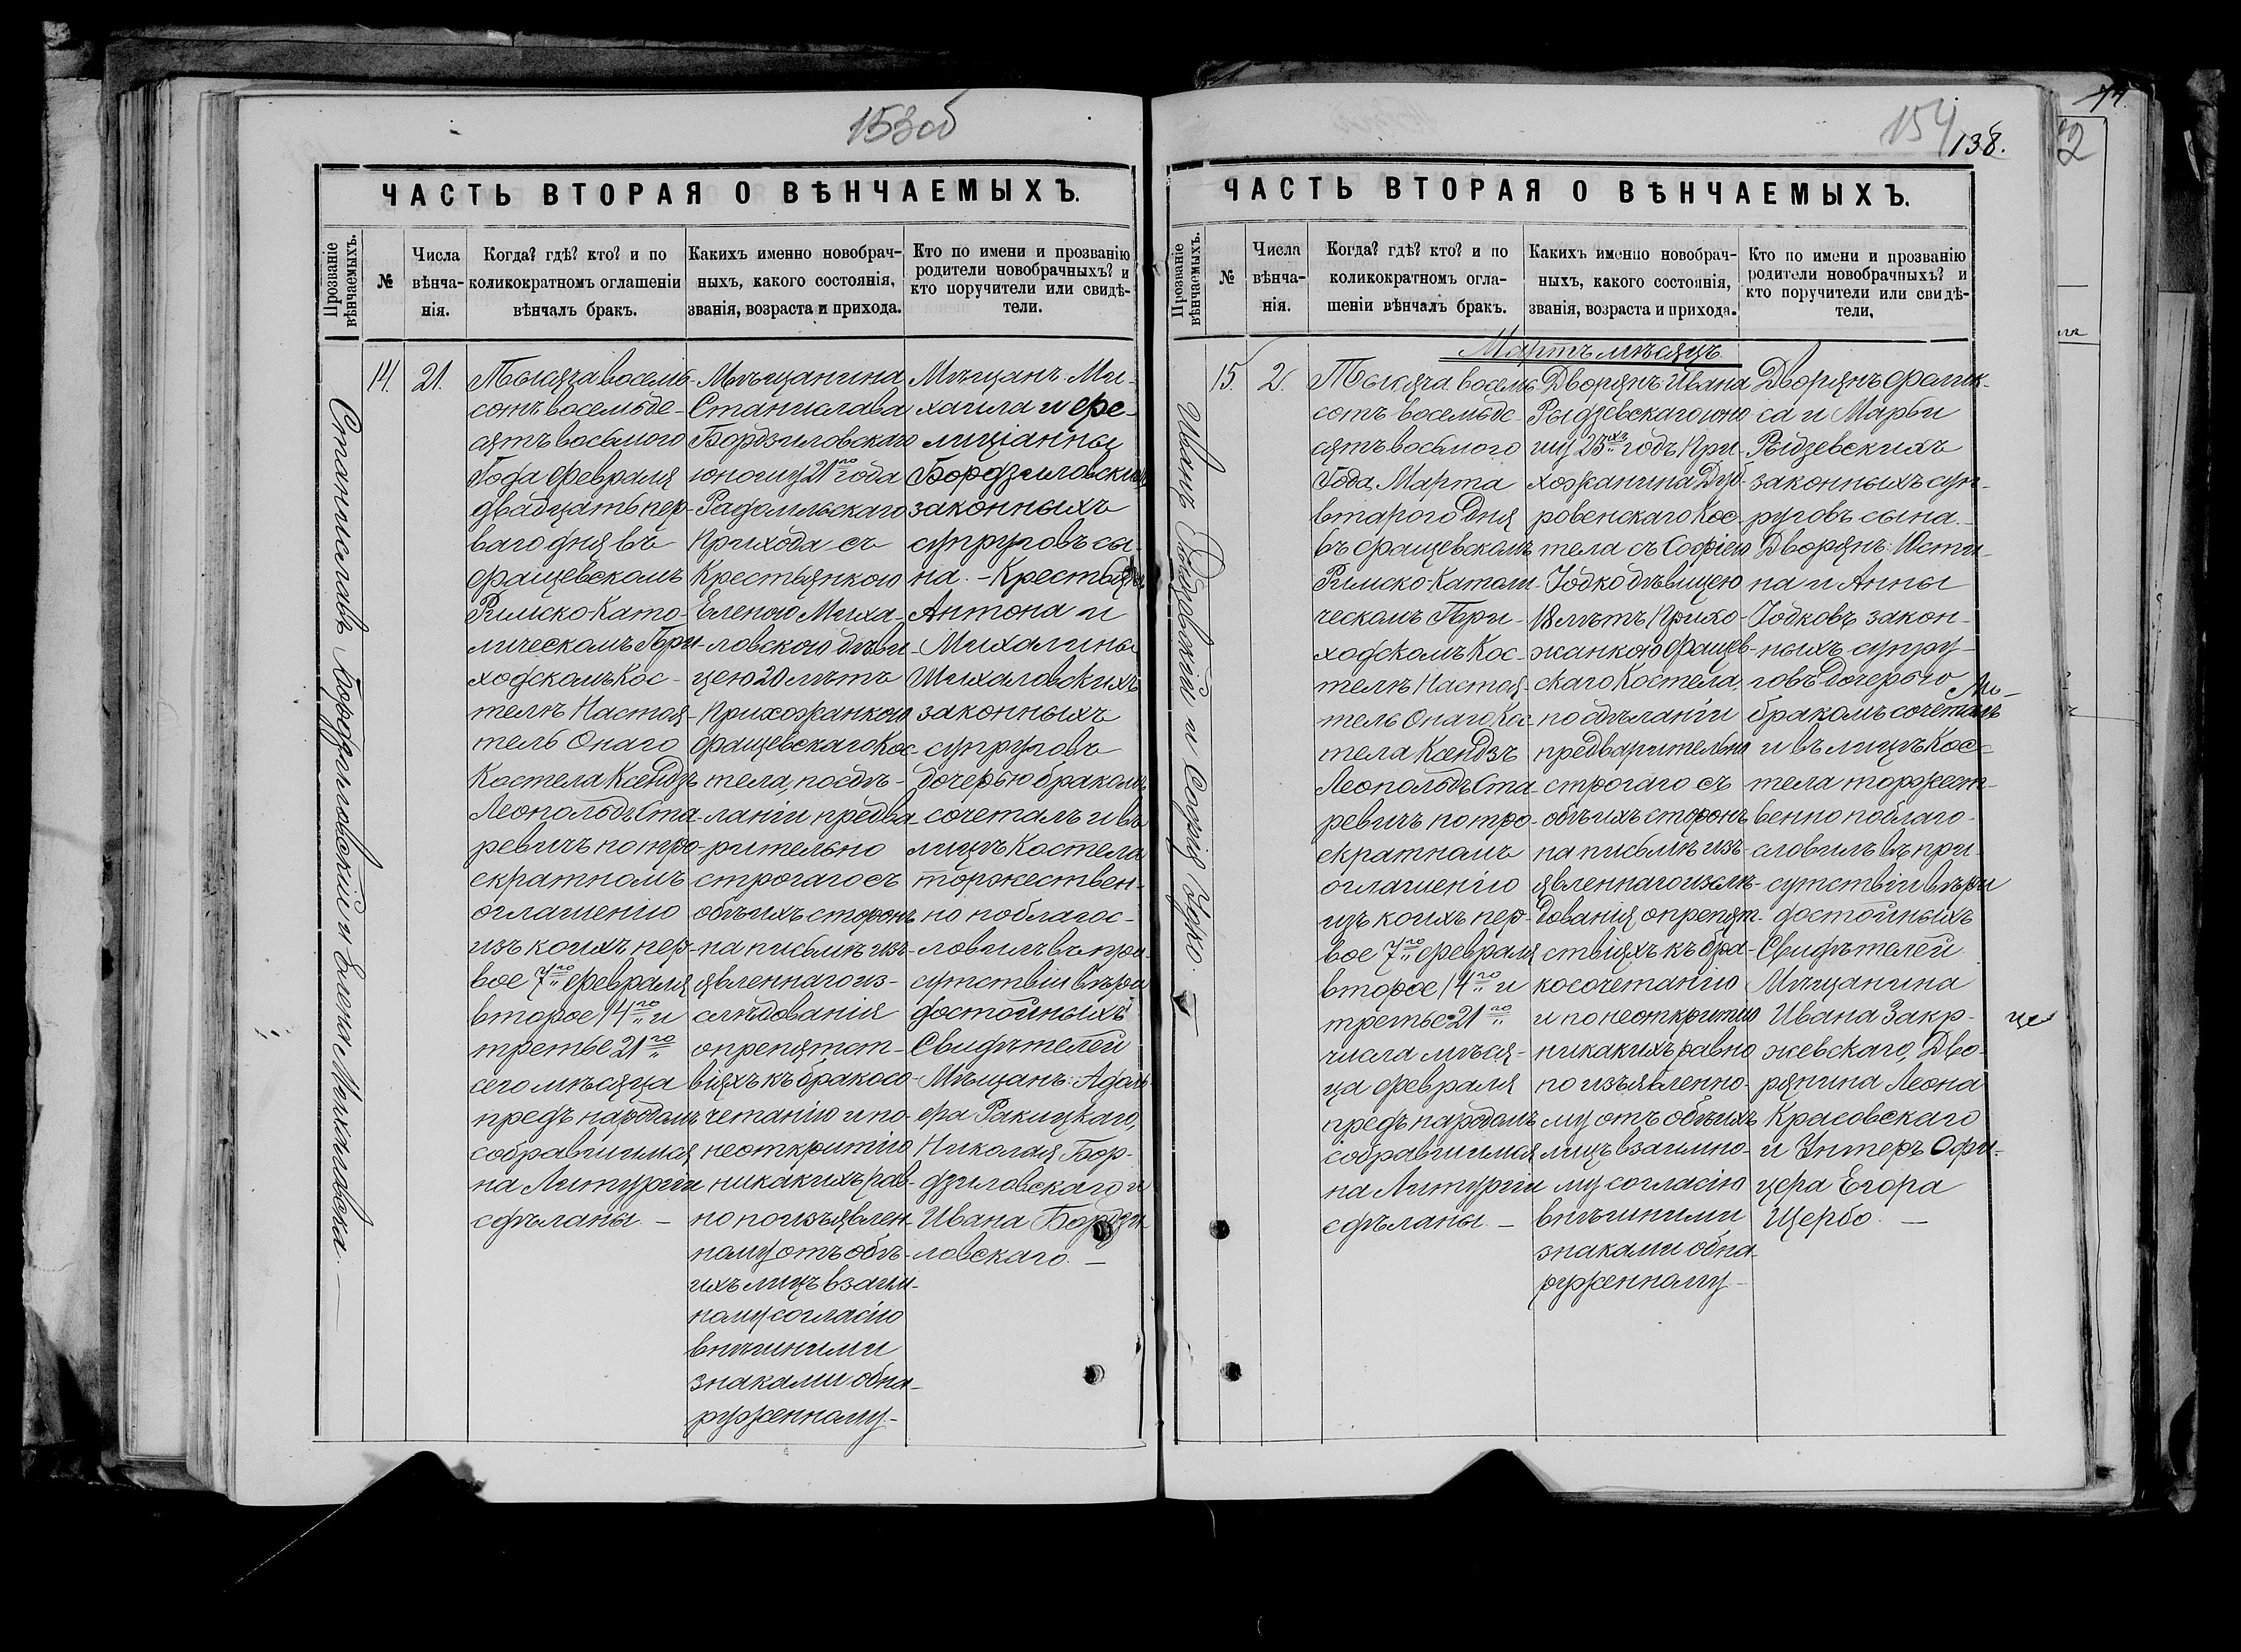 153об
ЧАСТЬ ВТОРАЯ О ВѢНЧАЕМЫХЪ.
Прозваніе вѣнчаемыхъ.
№
Числа вѣнча-нія.
Когда? гдѣ? кто? и по коликократномъ оглашеніи вѣнчалъ бракъ.
Какихъ именно новобрач-ныхъ, какого состоянія, званія, возраста и прихода.
Кто по имени и прозванію родители новобрачныхъ? и кто поручители или свидѣ-тели.
Станиславъ Бордзиловскій и Елена Михаловска.
14.
21.
Тысяча восемь-
сотъ восемьде-
сятъ восьмого
Года Февраля
двадцать пер-
ваго дня въ
Фащевскомъ
Римско Като-
лическомъ При-
ходскомъ Кос-
телѣ Настоя-
тель Онаго
Костела Ксендзъ
Леопольдъ Ста-
ревичъ по тро-
екратномъ
оглашенію
изъ коихъ пер-
вое 7го Февраля
второе 14го и
третье 21го
сего мѣсяца
предъ народомъ
собравшимся
на Литургіи
сдѣланы. —
Мѣщанина
Станислава
Бордзиловскаго
юношу 21го года
Радомльскаго
Прихода съ
Крестьянкою
Еленою Миха-
ловскою дѣви-
цею 20 лѣтъ
Прихожанкою
Фащевскаго Кос-
тела, по сдѣ-
ланіи предва-
рительно
строгаго съ
обѣихъ сторонъ
на письмѣ изъ-
явленнаго из-
слѣдованія
о препятст-
віяхъ къ бракосо-
четанію и по
неоткрытію
никакихъ рав-
но по изъявлен-
ному отъ обѣ-
ихъ лицъ взаим-
ному согласію
внѣшними
знаками обна-
руженному.-
Мѣщанъ Ми-
хаила и Фе-
лиціанны
Бордзиловскихъ
законныхъ
супруговъ сы-
на. - Крестьянъ
Антона и
Михалины
Михаловскихъ
законныхъ
супруговъ
дочерью бракомъ
сочеталъ и въ
лицѣ Костела
торжествен-
но поблагос-
ловилъ въ при-
сутствіи вѣри
достойныхъ
Свидѣтелей
Мѣщанъ: Адоль-
фа Ракицкаго,
Николая Бор-
дзиловскаго и
Ивана Бордзи-
ловскаго. —
154
138.
ЧАСТЬ ВТОРАЯ О ВѢНЧАЕМЫХЪ.
Прозваніе вѣнчаемыхъ.
№
Числа вѣнча-нія.
Когда? гдѣ? кто? и по коликократномъ огла-шеніи вѣнчалъ бракъ.
Какихъ именно новобрач-ныхъ, какого состоянія, званія, возраста и прихода.
Кто по имени и прозванію родители новобрачныхъ? и кто поручители или свидѣ-тели,
Мартъ мѣсяцъ
15.
2.
Тысяча восемь-
сотъ восемьде-
сятъ восьмого
Года Марта
втарого Дня
въ Фащевскомъ
Римско-Католи-
ческомъ При-
ходскомъ Кос-
телѣ Настоя-
тель Онаго Кос-
тела Ксендзъ
Леопольдъ Ста-
ревичъ по тро-
екратномъ
оглашенію
изъ коихъ пер-
вое 7го Февраля
второе 14го и
третье 21го
числа мѣся-
ца Февраля
предъ народомъ
собравшимся
на Литургіи
сдѣланы. —
Дворянъ: Ивана
Рыдзевскаго юно-
шу 23хъ годъ При-
хожанина Дуб-
ровенскаго Кос-
тела съ Софіею
Іодко дѣвицею
18 лѣтъ Прихо-
жанкою Фащев-
скаго Костела,
по сдѣланіи
предварительно
строгаго съ
обѣихъ сторонъ
на письмѣ изъ-
явленнаго изслѣ-
дованія о препят-
ствіяхъ къ бра-
косочетанію
и по неоткрытію
никакихъ равно
по изъявленно-
му отъ обѣихъ
лицъ взаимно-
му согласію
внѣшними
знаками обна-
руженному-
Дворянъ Фелик-
са и Марьи
Рыдзевскихъ
законныхъ суп-
руговъ сына.-
Дворянъ: Юсти-
на и Анны
Іодковъ закон-
ныхъ супру-
говъ Дочерью
бракомъ сочеталъ
и въ лицѣ Кос-
тела торжест-
венно поблаго-
словилъ въ при-
сутствіи вѣри
достойныхъ
Свидѣтелей
Мѣщанина
Ивана Закр-
жевскаго, Дво-
рянина Леона
Красовскаго
и Унтеръ Офи-
цера Егора
Щербо. —